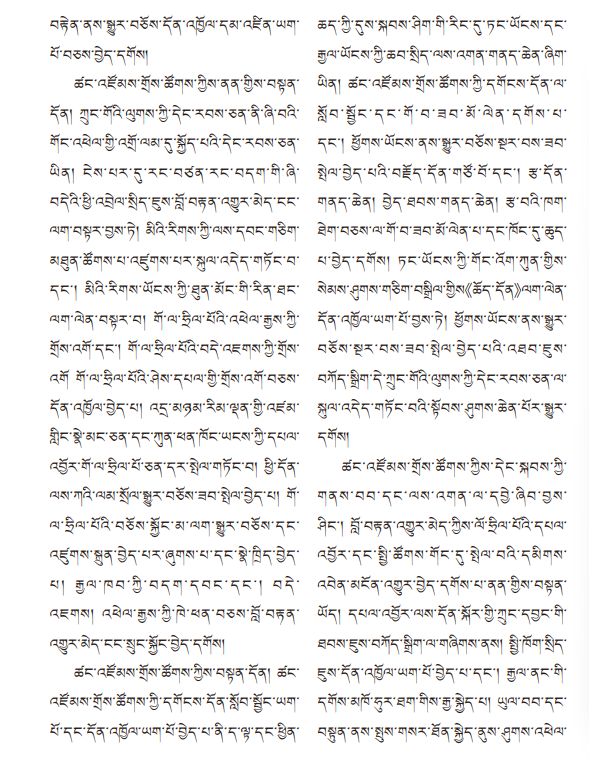 བརྟེན་ནས་སྒྱུར་བཅོས་དོན་འཁྱོལ་དམ་འཛིན་ཡག་
པོ་བཅས་བྱེད་དགོས།
ཚང་འཛོམས་གྲོས་ཚོགས་ཀྱིས་ནན་གྱིས་བསྟན་
དོན། ཀྲུང་གོའི་ལུགས་ཀྱི་དེང་རབས་ཅན་ནི་ཞི་བའི་
གོང་འཕེལ་གྱི་འགྲོ་ལམ་དུ་སྐྱོད་པའི་དེང་རབས་ཅན་
ཡིན། ངེས་པར་དུ་རང་བཙན་རང་བདག་གི་ཞི་
བདེའི་ཕྱི་འབྲེལ་སྲིད་ཇུས་བློ་བརྟན་འགྱུར་མེད་ངང་
ལག་བསྟར་བྱས་ཏེ། མིའི་རིགས་ཀྱི་ལས་དབང་གཅིག་
མཐུན་ཚོགས་པ་འཛུགས་པར་སྐུལ་འདེད་གཏོང་བ་
དང་། མིའི་རིགས་ཡོངས་ཀྱི་ཐུན་མོང་གི་རིན་ཐང་
ལག་ལེན་བསྟར་བ། གོ་ལ་ཧྲིལ་པོའི་འཕེལ་རྒྱས་ཀྱི་
གྲོས་འགོ་དང་། གོ་ལ་ཧྲིལ་པོའི་བདེ་འཇགས་ཀྱི་གྲོས་
འགོ གོ་ལ་ཧྲིལ་པོའི་ཤེས་དཔལ་གྱི་གྲོས་འགོ་བཅས་
དོན་འཁྱོལ་བྱེད་པ། འདྲ་མཉམ་རིམ་ལྡན་གྱི་འཛམ་
གླིང་སྣེ་མང་ཅན་དང་ཀུན་ཕན་ཁོང་ཡངས་ཀྱི་དཔལ་
འབྱོར་གོ་ལ་ཧྲིལ་པོ་ཅན་དར་སྤེལ་གཏོང་བ། ཕྱི་དོན་
ལས་ཀའི་ལམ་སྲོལ་སྒྱུར་བཅོས་ཟབ་སྤེལ་བྱེད་པ། གོ་
ལ་ཧྲིལ་པོའི་བཅོས་སྐྱོང་མ་ལག་སྒྱུར་བཅོས་དང་
འཛུགས་སྐྲུན་བྱེད་པར་ཞུགས་པ་དང་སྣེ་ཁྲིད་བྱེད་
པ། རྒྱལ་ཁབ་ཀྱི་བདག་དབང་དང་། བདེ་
འཇགས། འཕེལ་རྒྱས་ཀྱི་ཁེ་ཕན་བཅས་བློ་བརྟན་
འགྱུར་མེད་ངང་སྲུང་སྐྱོང་བྱེད་དགོས།
ཚང་འཛོམས་གྲོས་ཚོགས་ཀྱིས་བསྟན་དོན། ཚང་
འཛོམས་གྲོས་ཚོགས་ཀྱི་དགོངས་དོན་སློབ་སྦྱོང་ཡག་
པོ་དང་དོན་འཁྱོལ་ཡག་པོ་བྱེད་པ་ནི་ད་ལྟ་དང་ཕྱིན་
ཆད་ཀྱི་དུས་སྐབས་ཤིག་གི་རིང་དུ་ཏང་ཡོངས་དང་
རྒྱལ་ཡོངས་ཀྱི་ཆབ་སྲིད་ལས་འགན་གནད་ཆེན་ཞིག་
ཡིན། ཚང་འཛོམས་གྲོས་ཚོགས་ཀྱི་དགོངས་དོན་ལ་
སློབ་སྦྱོང་དང་གོ་བ་ཟབ་མོ་ལེན་དགོས་པ་
དང་། ཕྱོགས་ཡོངས་ནས་སྒྱུར་བཅོས་སྔར་བས་ཟབ་
སྤེལ་བྱེད་པའི་བརྗོད་དོན་གཙོ་བོ་དང་། རྩ་དོན་
གནད་ཆེན། བྱེད་ཐབས་གནད་ཆེན། རྩ་བའི་ཁག་
ཐེག་བཅས་ལ་གོ་བ་ཟབ་མོ་ལེན་པ་དང་ཁོང་དུ་ཆུད་
པ་བྱེད་དགོས། ཏང་ཡོངས་ཀྱི་གོང་འོག་ཀུན་གྱིས་
སེམས་ཤུགས་གཅིག་བསྒྲིལ་གྱིས《ཆོད་དོན》ལག་ལེན་
དོན་འཁྱོལ་ཡག་པོ་བྱས་ཏེ། ཕྱོགས་ཡོངས་ནས་སྒྱུར་
བཅོས་སྔར་བས་ཟབ་སྤེལ་བྱེད་པའི་འཐབ་ཇུས་
བཀོད་སྒྲིག་དེ་ཀྲུང་གོའི་ལུགས་ཀྱི་དེང་རབས་ཅན་ལ་
སྐུལ་འདེད་གཏོང་བའི་སྟོབས་ཤུགས་ཆེན་པོར་སྒྱུར་
དགོས།
ཚང་འཛོམས་གྲོས་ཚོགས་ཀྱིས་དེང་སྐབས་ཀྱི་
གནས་བབ་དང་ལས་འགན་ལ་དབྱེ་ཞིབ་བྱས་
ཤིང་། བློ་བརྟན་འགྱུར་མེད་ཀྱིས་ལོ་ཧྲིལ་པོའི་དཔལ་
འབྱོར་དང་སྤྱི་ཚོགས་གོང་དུ་སྤེལ་བའི་དམིགས་
འབེན་མངོན་འགྱུར་བྱེད་དགོས་པ་ནན་གྱིས་བསྟན་
ཡོད། དཔལ་འབྱོར་ལས་དོན་སྐོར་གྱི་ཀྲུང་དབྱང་གི་
ཐབས་ཇུས་བཀོད་སྒྲིག་ལ་གཞིགས་ནས། སྤྱི་ཁོག་སྲིད་
ཇུས་དོན་འཁྱོལ་ཡག་པོ་བྱེད་པ་དང་། རྒྱལ་ནང་གི་
དགོས་མཁོ་ཧུར་ཐག་གིས་རྒྱ་སྐྱེད་པ། ཡུལ་བབ་དང་
བསྟུན་ནས་སྤུས་གསར་ཐོན་སྐྱེད་ནུས་ཤུགས་འཕེལ་